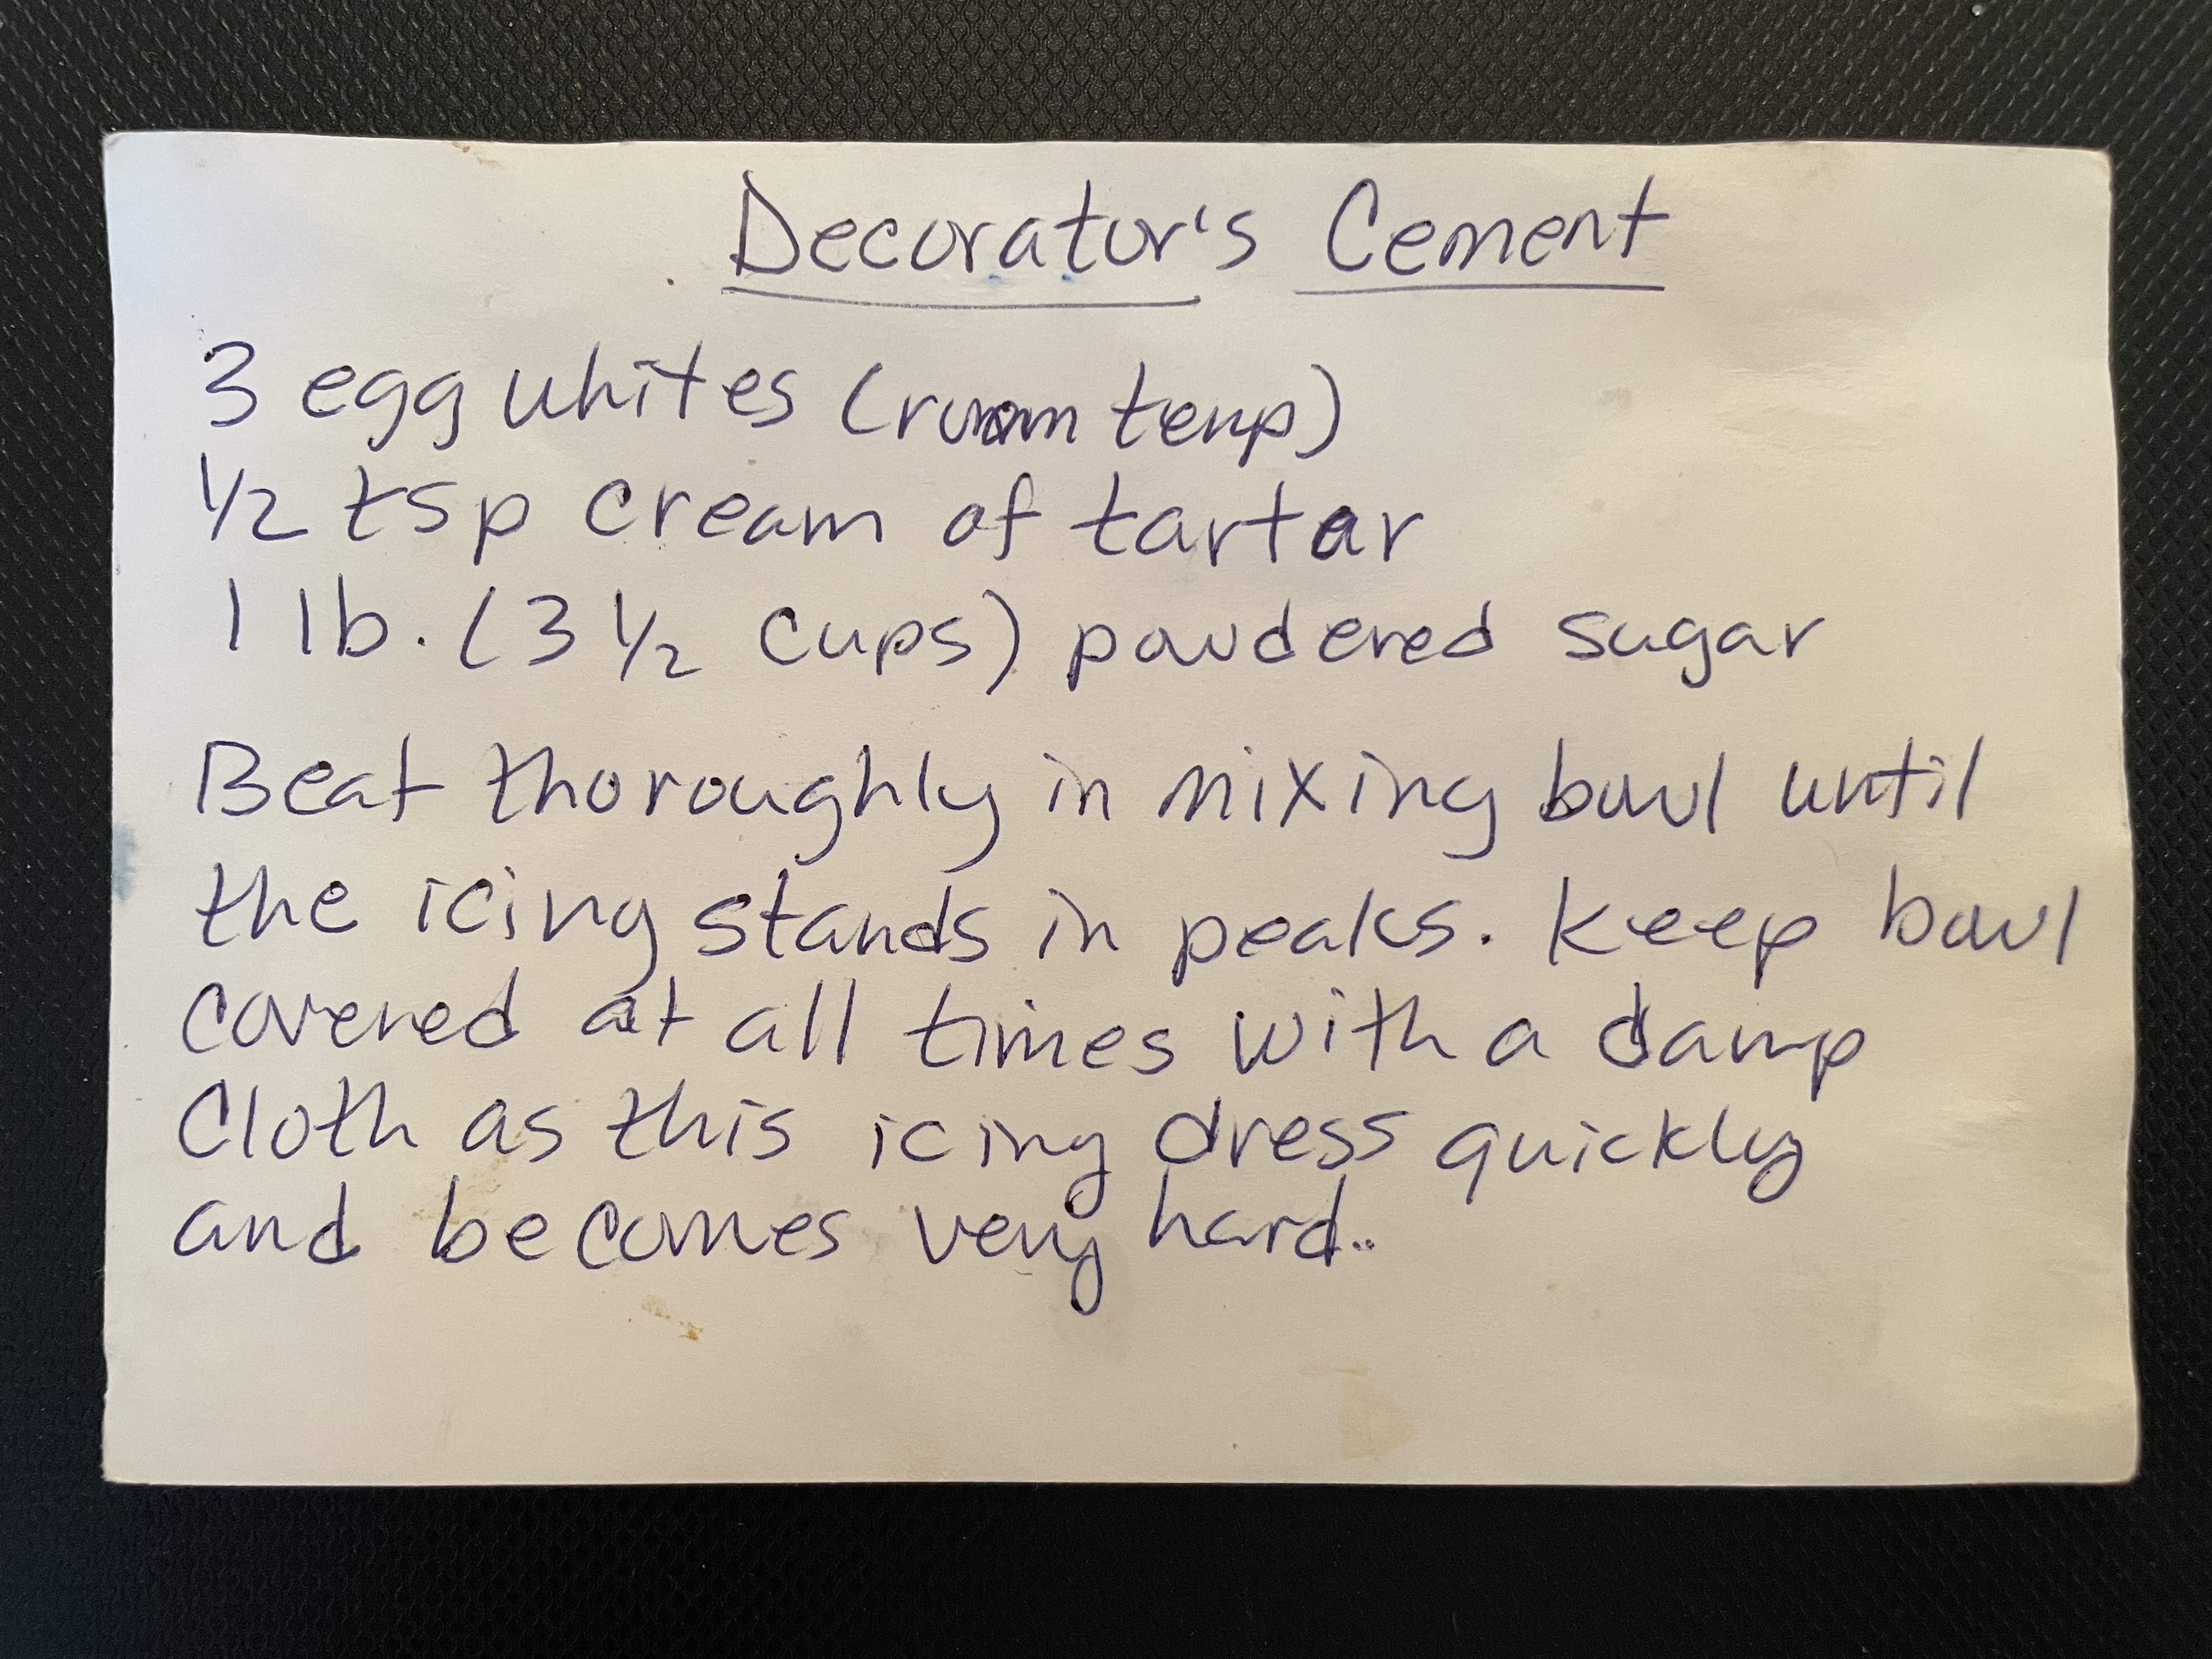 Decorator's Cement
3 egg whites (room temp)
1/2 tsp cream of tartar
1 lb. (3 1/2 cups) powdered sugar
Beat thoroughly in mixing bowl until
the icing stands in peaks. Keep bowl
covered at all times with a damp
Cloth as this icing dress quickly
and becomes very hard..